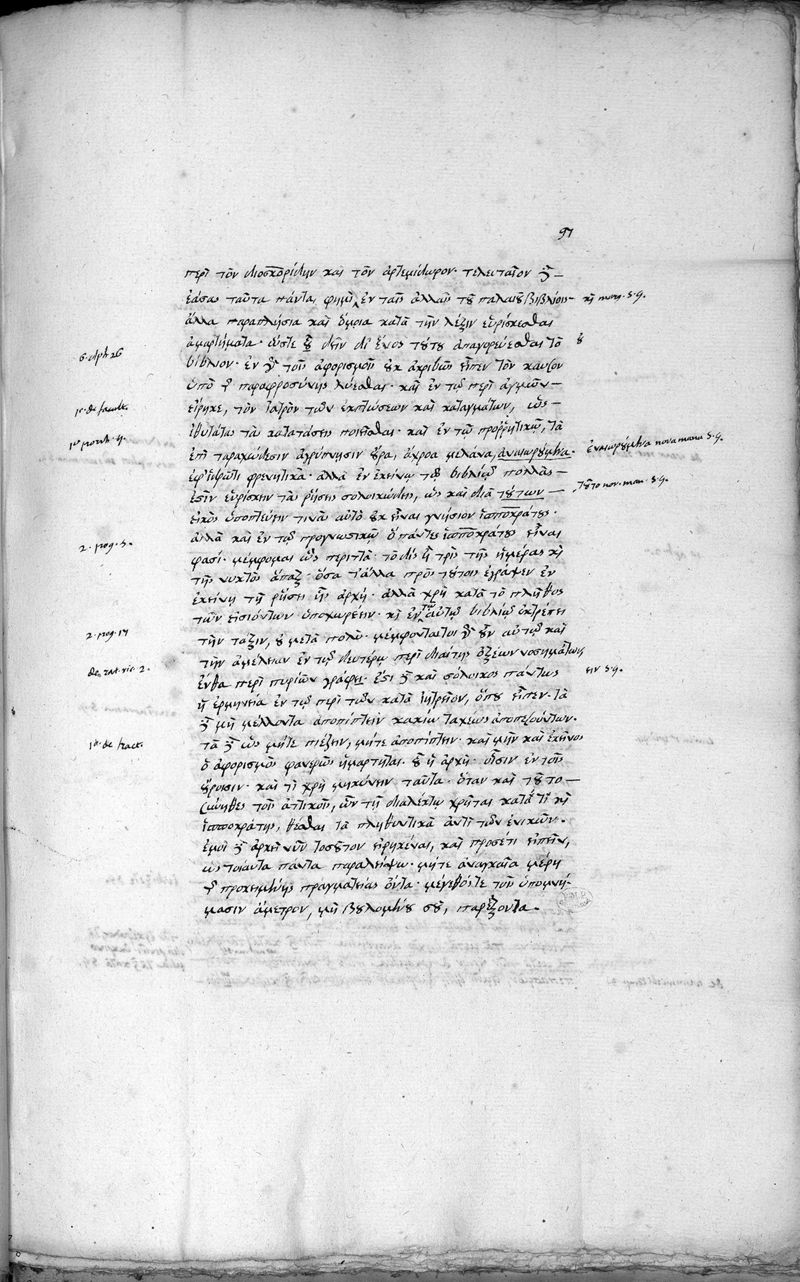 97
περὶ τὸν διοσκορίδην καὶ τὸν ἀρτεμίδωρον· τελευταῖον δὲ
ἐάσω ταῦτα πάντα, φημὶ ἐν ταῖς ἄλλαις τοῦ παλαιοῦ βιβλίοις
ἄλλα παραπλήσια καὶ ὅμοια κατὰ τὴν λέξιν εὑρίσκεσθαι
ἁμαρτήματα· ὥστε οὐ δεῖν δι' ἑνὸς τούτου ἀπαγορεύεσθαι τὸ
βιβλίον· ἐν γὰρ τοῖς ἀφορισμοῖς οὐκ ἀκριβῶς εἶπεν τὸν καῦσον
ὑπὸ τῆς παραφροσύνης λύεσθαι· καὶ ἐν τῷ περὶ ἀγμῶν
εἴρηκε, τὸν ἰατρὸν τῶν ἐκπτώσεων καὶ καταγμάτων, ὡς
ἰθυτάτας τὰς κατατάσεις ποιεῖσθαι· καὶ ἐν τῷ προρρητικῷ, τὰ
ἐπὶ ταραχώδεσιν ἀγρύπνησιν οὖρα, ἄχροα μέλανα, ἐναιωρούμενα·
ἐφ' ἱδρῶτι φρενητικά· ἀλλὰ ἐν ἐκείνῳ τῷ βιβλίῳ πολλὰς
ἐστὶν εὑρίσκειν τὰς ῥήσεις σολοικώδεις, ὡς καὶ διὰ τούτων
εἰκὸς ὑποπτεύειν τινὰς αὐτὸ οὐκ εἶναι γνήσιον ἱπποκράτους·
ἀλλὰ καὶ ἐν τῷ προγνωστικῷ ὃ πάντες ἱπποκράτους εἶναι
φασί· μέμφομαι ὡς περιττὰ τὸ δὶς ἢ τρὶς τῆς ἡμέρας καὶ
τῆς νυκτὸς ἅπαξ· ὅσα τ' ἄλλα πρὸς τούτοις ἔγραψεν ἐν
ἐκείνῃ τῇ ῥήσει ἧς ἀρχή· ἀλλὰ χρὴ κατὰ τὸ πλῆθος
τῶν εἰσιόντων ὑποχωρέειν· καὶ ἐν τῷ αὐτῷ βιβλίῳ ἐκτρέπει
τὴν τάξιν, οὐ μετὰ πολύ· μέμφονται γὰρ οὖν αὐτῷ καὶ
τὴν ἀμέλειαν ἐν τῷ δευτέρῳ περὶ διαίτης ὀξέων νοσημάτων
ἔνθα περὶ πυριῶν γράφει· ἔτι δὲ καὶ σόλοικος πάντως
ἡ ἑρμηνεία ἐν τῷ περὶ τῶν κατὰ ἰητρεῖον, ὅπου εἶπεν· τὰ
δὲ μὴ μέλλοντα ἀποπίπτειν κακίω ταχέως ἀποπεζούντων·
τὰ δὲ ὡς μήτε πιέζειν, μήτε ἀποπίπτειν· καὶ μὴν καὶ ἐκεῖνος
ὁ ἀφορισμὸς φανερῶς ἡμάρτηται· οὗ ἡ ἀρχή· οἷσιν ἐν τοῖς
οὔροισιν· καὶ τί χρὴ μηκύνειν ταῦτα· ὅταν καὶ τοῦτο
σύνηθες τοῖς ἀττικοῖς, ὧν τῇ διαλέκτῳ χρῆται κατά τι καὶ
ἱπποκράτης, θέσθαι τὰ πληθυντικὰ ἀντὶ τῶν ἑνικῶν·
ἐμοὶ δὲ ἀρκεῖ νῦν τοσοῦτον εἰρηκέναι, καὶ προσέτι εἰπεῖν,
ὡς τοιαῦτα πάντα παραλείψω· μήτε ἀναγκαῖα μέρη
τῆς προκειμένης πραγματείας ὄντα· μέγεθός τε τοῖς ὑπομνή-
μασιν ἄμετρον, μὴ βουλομένου σοῦ, παρέξοντα.
6. aph. 26
1º. de fract.
1º prorrh. 4.
2. prog. 5.
2. prog. 17
de rat. vic. 2.
1º. de fract.
ἐναιωρούμενα nova manu s. g.
τοῦτο nov. man. s. g.
ειν s. g.